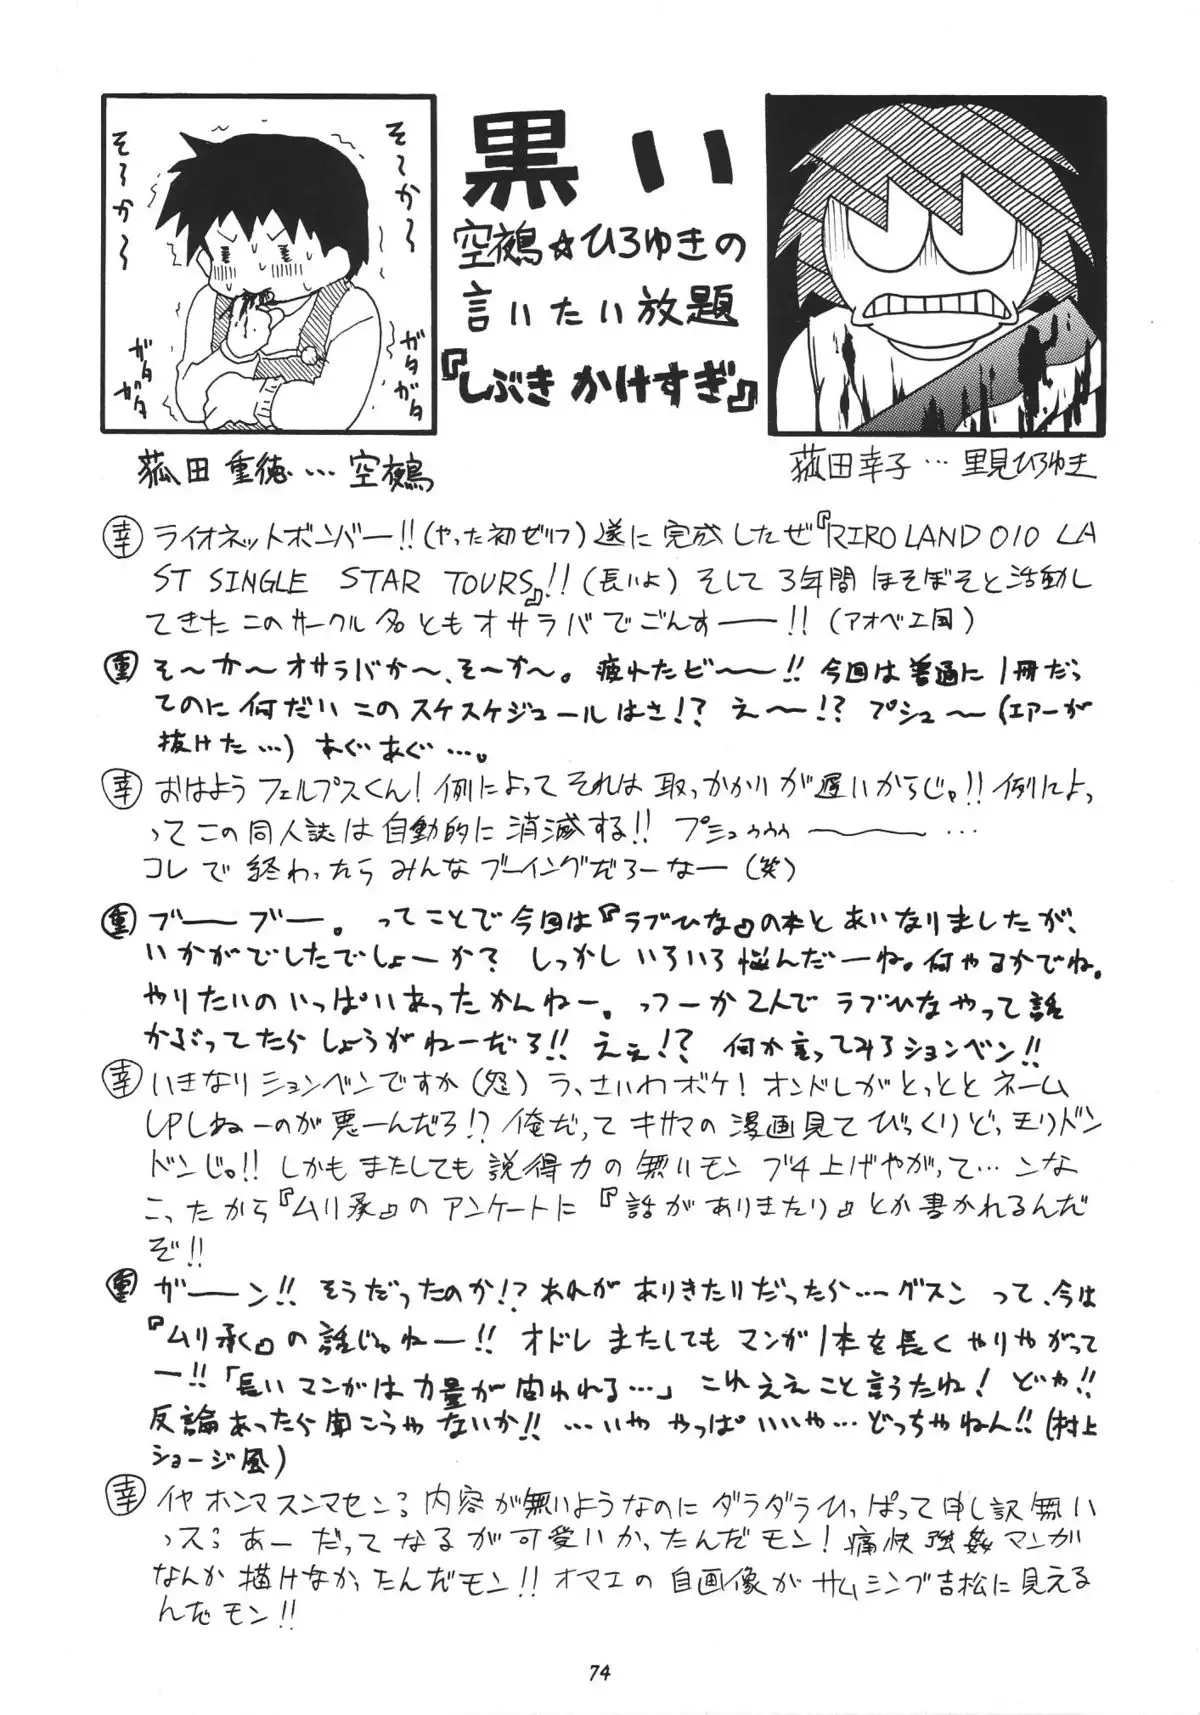 そ〜か〜
そ〜か〜
ガタガタ
ガタガタ
黒い
空鵺☆ひろゆきの
言いたい放題
『しぶきかけすぎ』
狐田重徳…空鵺
狐田幸子…里見ひろゆき
幸 ライオネットボンバー!!(やった初ゼリフ)遂に完成したぜ『RIROLAND 010 LA
ST SINGLE STAR TOURS』!!(長いよ)そして3年間ほそぼそと活動し
てきたこのサークル名ともオサラバでごんすー!!(アオベエ風)
重 そ〜か〜オサラバか〜、そ〜か〜。疲れたビ〜〜!!今回は普通に1冊だっ
てのに何だいこのスケスケジュールはさ!?え〜!?プシュ〜(エアーが
抜けた…)あぐあぐ…。
幸 おはようフェルプスくん!例によってそれは取っかかりが遅いからじゃ!!例によ
ってこの同人誌は自動的に消滅する!!プシュゥゥゥ〜〜…
コレで終わったらみんなブーイングだろーなー(笑)
重 ブーブー。ってことで今回は『ラブひな』の本とあいなりましたが、
いかがでしたでしょーか?しっかしいろいろ悩んだーね。何やるかでね。
やりたいのいっぱいあったかんねー。っつーか2人でラブひなやって話
かぶってたらしょうがねーだろ!!ええ!?何か言ってみろションベン!!
幸 いきなりションベンですか(怨)うっさいわボケ!オンドレがとっととネーム
UPしねーのが悪ーんだろ!?俺だってキサマの漫画見てびっくりどっきりドン
ドンじゃ!!しかもまたしても説得力の無いモンブチ上げやがって…ンな
こったから『ムリ承』のアンケートに『話がありきたり』とか書かれるんだ
ぞ!!
重 ガーン!!そうだったのか!?あれがありきたりだったら…グスンって、今は
『ムリ承』の話じゃねー!!オドレまたしてもマンガ1本を長くやりやがって
ー!!「長いマンガは力量が問われる…」これええこと言うたね!どや!!
反論あったら聞こうやないか!!…いややっぱいいや…どっちやねん!!(村上
ショージ風)
幸 イヤホンマスンマセン?内容が無いようなのにダラダラひっぱって申し訳無い
ッス?あーだってなるが可愛いかったんだモン!痛快強姦マンガ
なんか描けなかったんだモン!!オマエの自画像がサムシング吉松に見える
んだモン!!
74